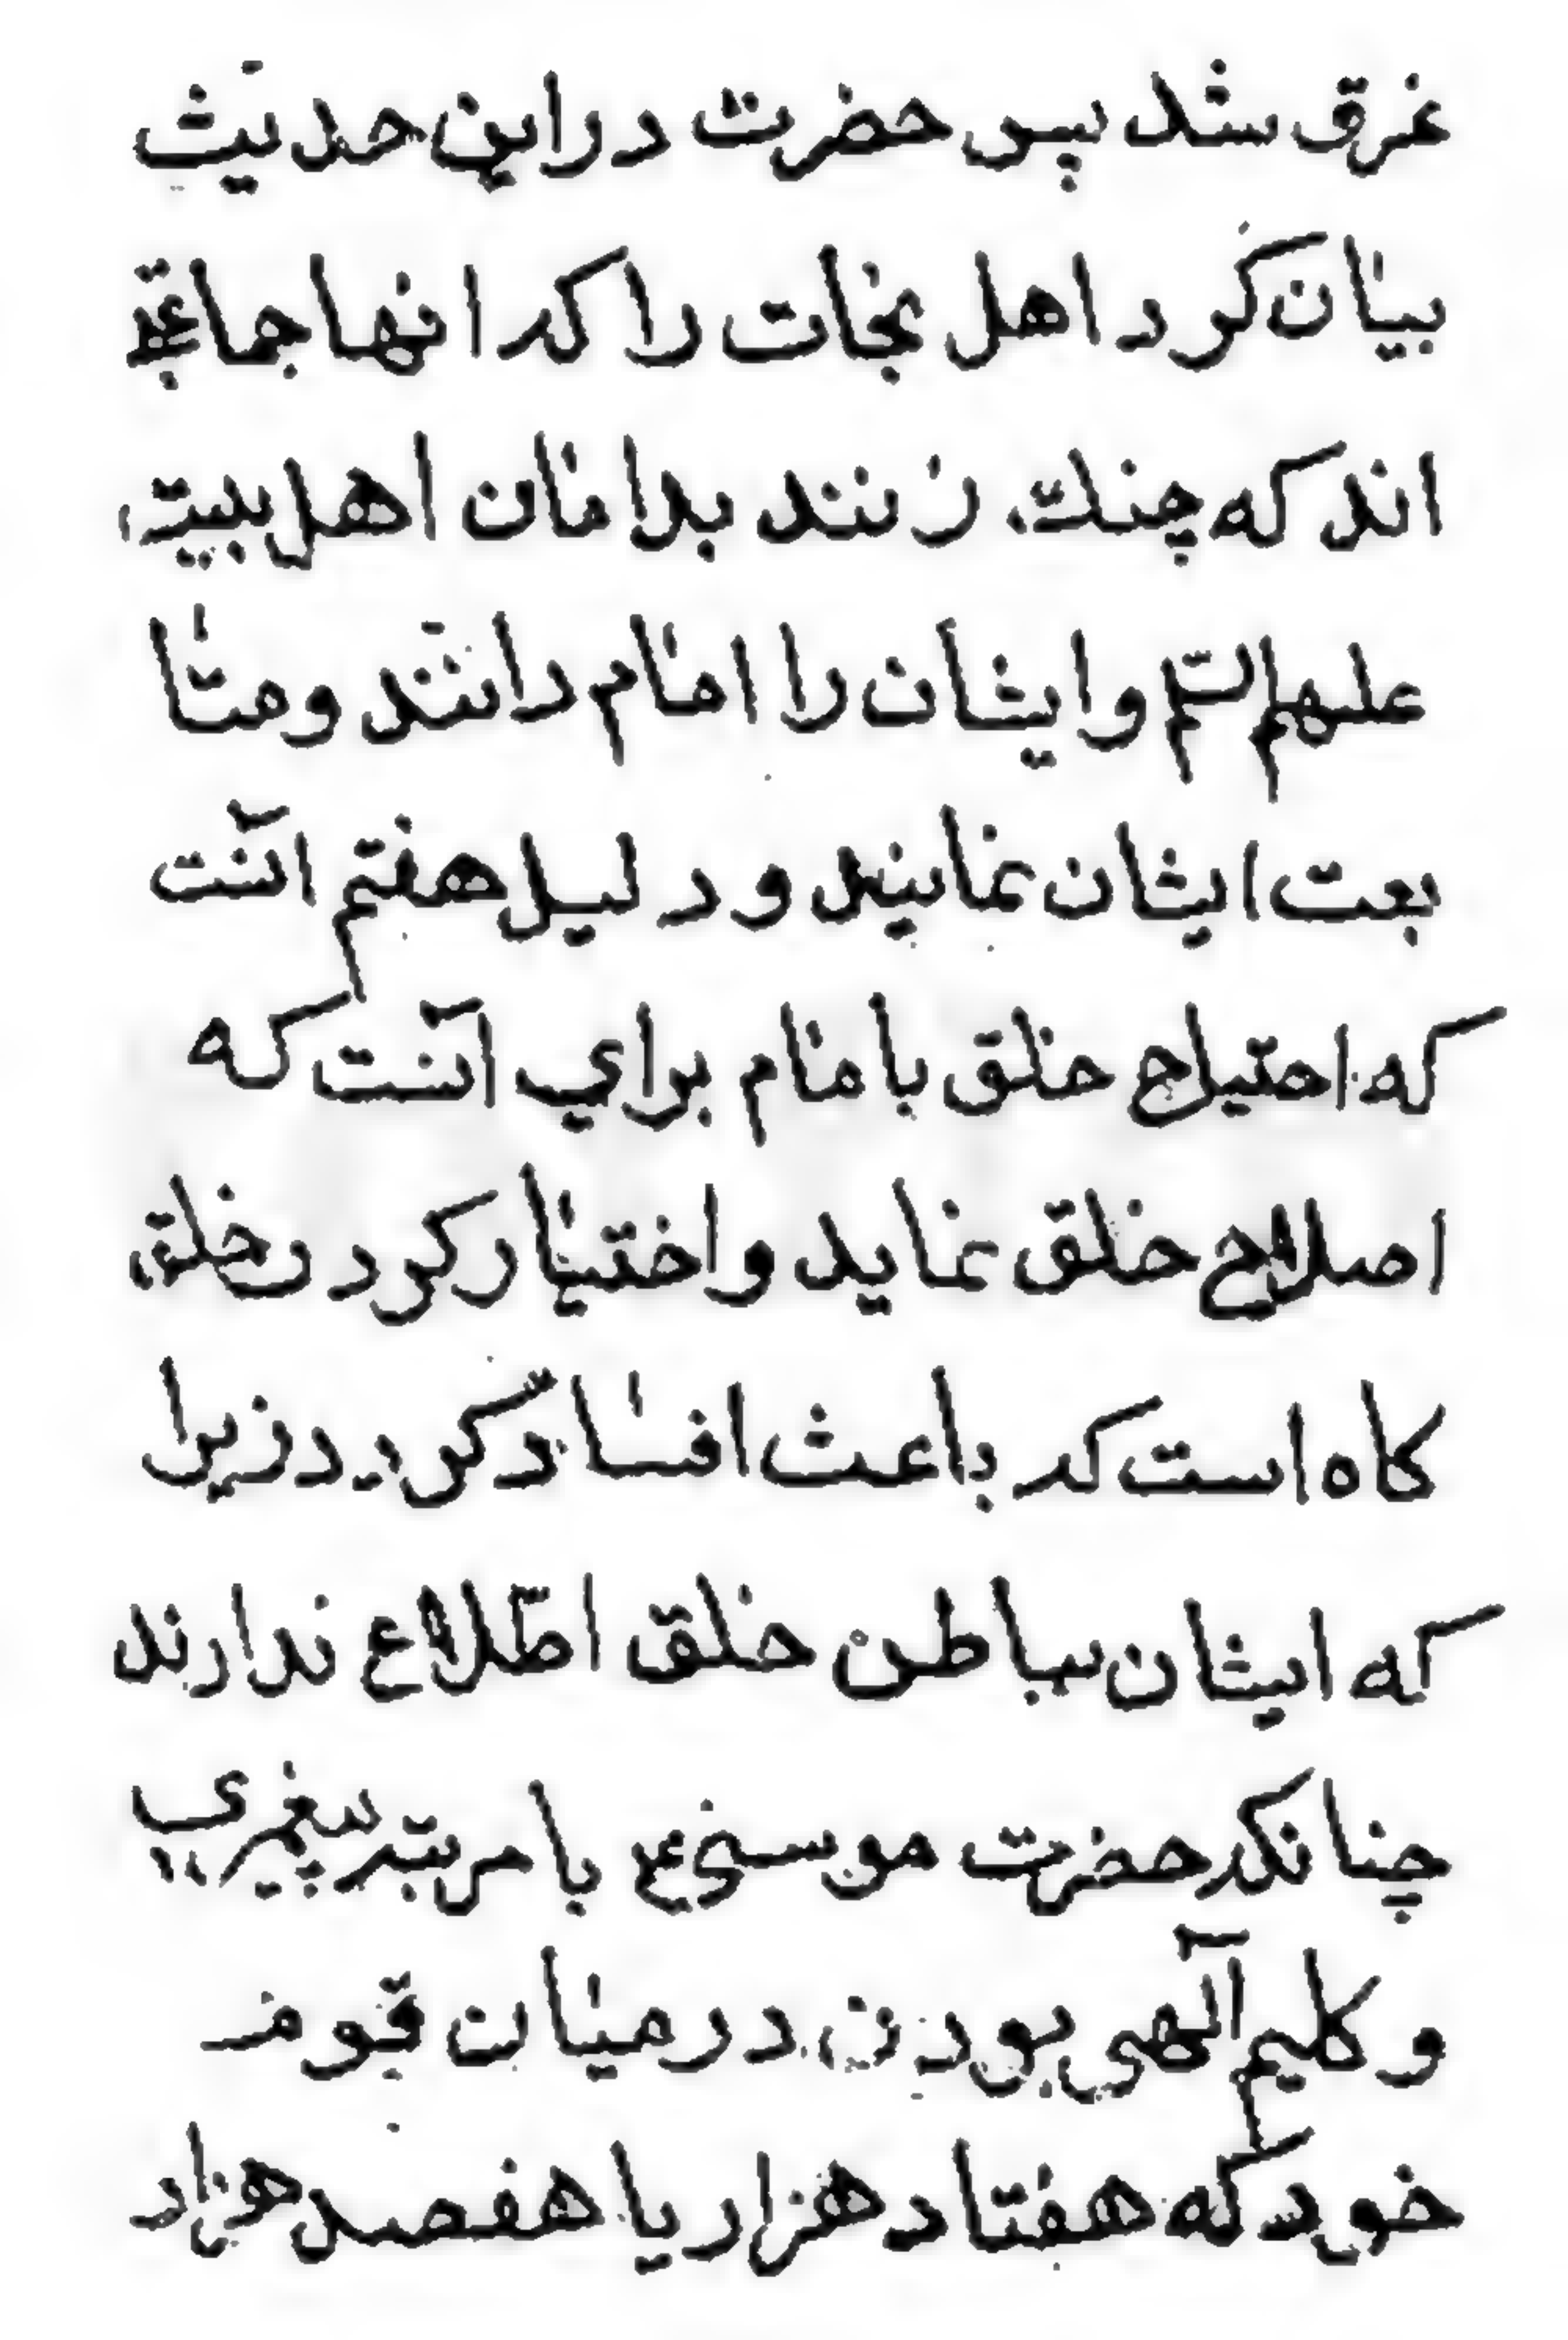 غرق شد پس حضرت در این حدیث
بیان کرد اهل نجات را که انها جماعتی
اند که چنك زنند بدامان اهل بیت
علیهم السّلم و ایشان را امام دانند و متا
بعت ایشان نمایند و دلیل هفتم آنست
که احتیاج خلق با مام براي آنست که
اصلاح خلق نماید و اختیار کردن خلق
کاه است که باعث افساد کردد زیرا
که ایشان بباطن خلق اطّلاع ندارند
چنانکه حضرت موسی ع با مرتبه پیغمبری
و کلیم آلهی بودن در میان قوم
خود که هفتاد هزار یا هفصد هزار